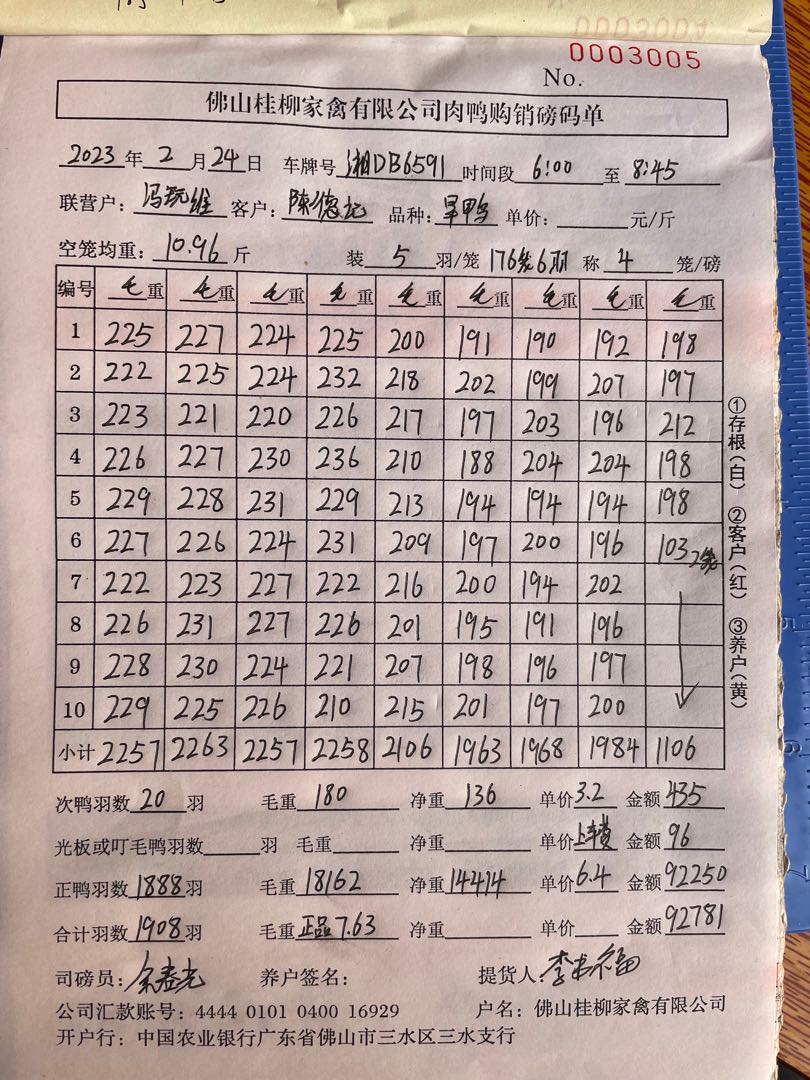 0003004
0003005
No.
佛山桂柳家禽有限公司肉鸭购销磅码单
2023年2月24日 车牌号湘DB6591时间段6:00至8:45
联营户:冯玩维 客户:陈德记 品种:旱鸭 单价: 元/斤
空笼均重:10.96斤 装5羽/笼 176笼6羽 称4笼/磅
编号 毛重 毛重 毛重 毛重 毛重 毛重 毛重 毛重 毛重
1 225 227 224 225 200 191 190 192 198
2 222 225 224 232 218 202 199 207 197
3 223 221 220 226 217 197 203 196 212
4 226 227 230 236 210 188 204 204 198
5 229 228 231 229 213 194 194 194 198
6 227 226 224 231 209 197 200 196 103 2笼
7 222 223 227 222 216 200 194 202
8 226 231 227 226 201 195 191 196
9 228 230 224 221 207 198 196 197
10 229 225 226 210 215 201 197 200
小计 2257 2263 2257 2258 2106 1963 1968 1984 1106
次鸭羽数20羽 毛重180 净重136 单价3.2 金额435
光板或叮毛鸭羽数 羽 毛重 净重 单价上车费 金额96
正鸭羽数1888羽 毛重18162 净重14414 单价6.4 金额92250
合计羽数1908羽 毛重正品7.63 净重 单价 金额92781
司磅员: 养户签名: 提货人:
公司汇款账号:4444 0101 0400 16929 户名:佛山桂柳家禽有限公司
开户行:中国农业银行广东省佛山市三水区三水支行
①存根(白) ②客户(红) ③养户(黄)